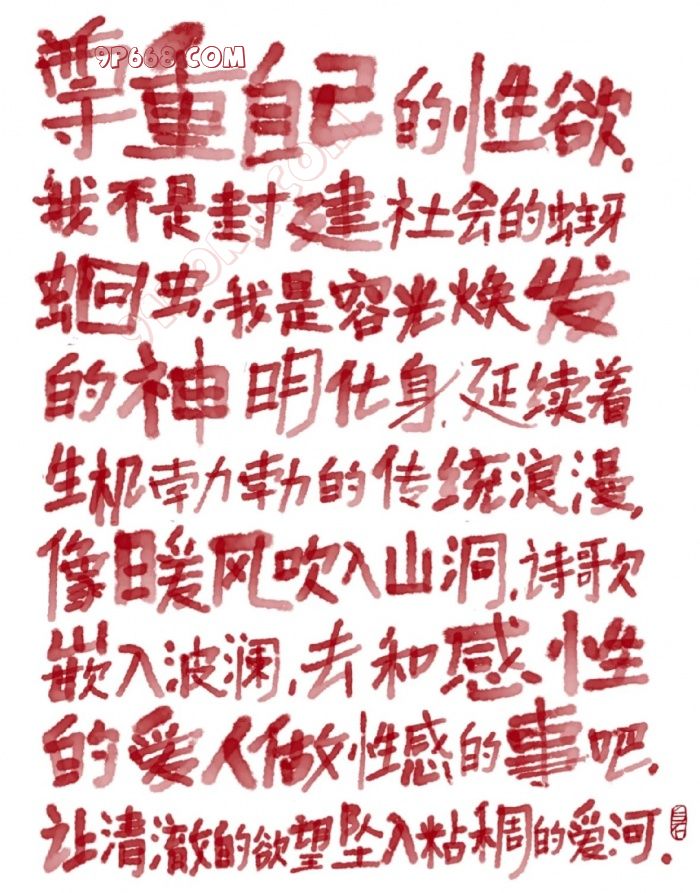 9P668.COM
尊重自己的性欲.
我不是封建社会的蚜
蛔虫,我是容光焕发
的神明化身,延续着
生机勃勃的传统浪漫,
像暖风吹入山洞,诗歌
嵌入波澜,去和感性
的爱人做性感的事吧.
让清澈的欲望坠入粘稠的爱河.